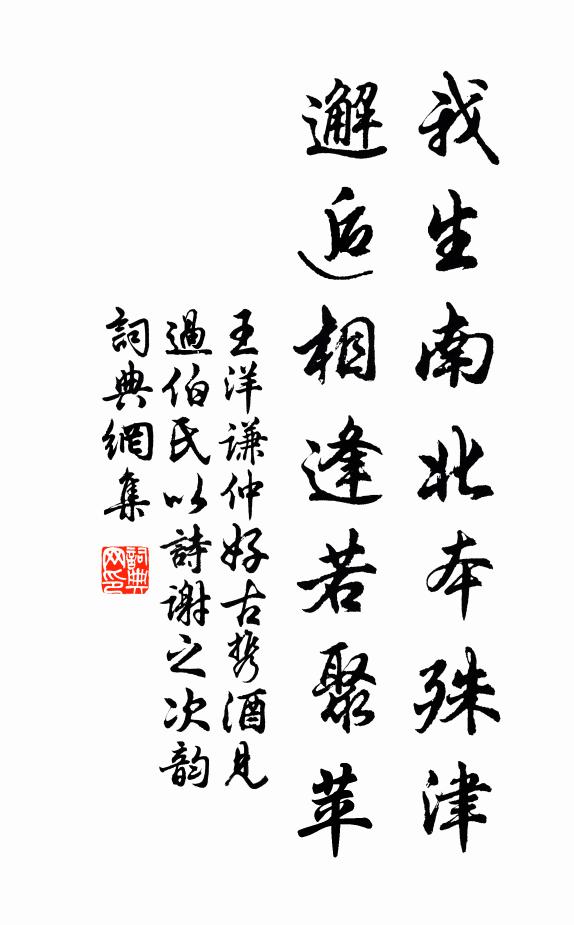 我生南北本殊津
邂逅相逢若聚苹
王洋謙仲好古携酒見
過伯氏以詩謝之次韵
詞典網集
詞典網印